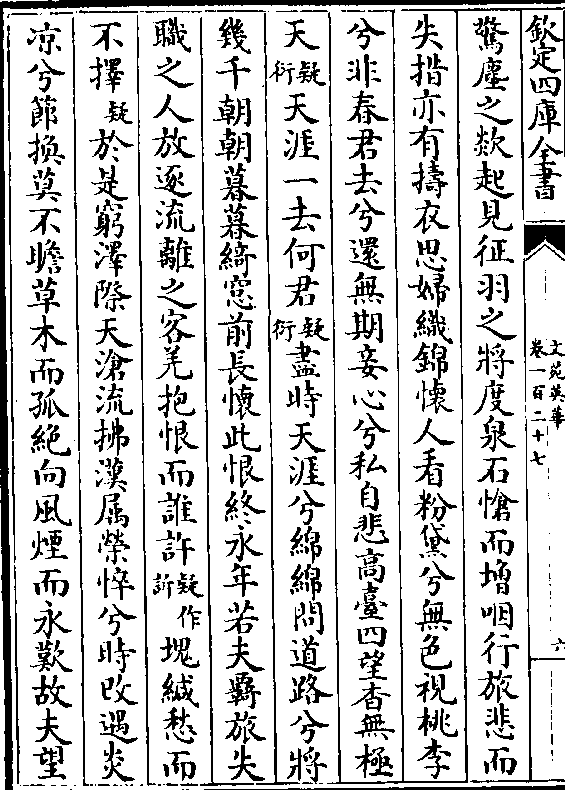 欽定四庫全書
文苑英華
卷一百二十七
六
驚塵之欻起見征羽之將度泉石愴而增咽行旅悲而
失措亦有擣衣思婦織錦懷人看粉黛兮無色視桃李
兮非春君去兮還無期妾心兮私自悲高臺四望杳無極
天疑衍天涯一去何君疑衍盡時天涯兮綿綿問道路兮將
幾千朝朝暮暮綺窓前長懷此恨終永年若夫羈旅失
職之人放逐流離之客羌抱恨而誰許疑作訴塊緘愁而
不擇疑於是窮澤際天滄流拂漢属榮悴兮時改遇炎
凉兮節換莫不瞻草木而孤絶向風煙而永歎故夫望